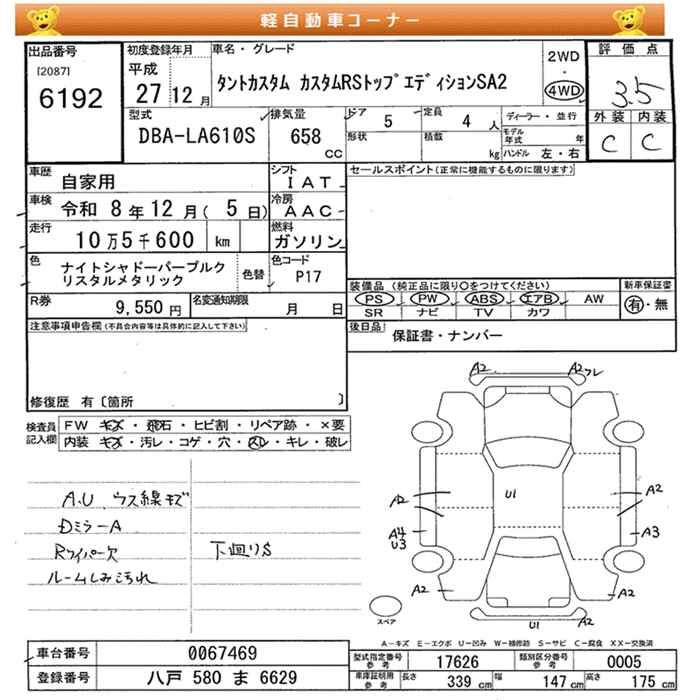 軽自動車コーナー
出品番号
[2087]
6192
初度登録年月
平成
27 12 月
車名・グレード
タントカスタム カスタムRSトップエディションSA2
2WD
・
4WD
評価点
3.5
外装 内装
C C
型式
DBA-LA610S
排気量
658
cc
ドア
5
定員
4 人
形状
積載
kg
ディーラー・並行
モデル年式 年
ハンドル 左・右
車歴
自家用
シフト
IAT
車検
令和 8年12月(5日)
冷房
AAC
走行
10万5千600 km
燃料
ガソリン
色
ナイトシャドーパープルク
リスタルメタリック
色替
色コード
P17
R券
9,550 円
名変通知期限
月 日
セールスポイント(正常に機能するものに限ります)
装備品 (純正品に限り○をつけてください)
PS PW ABS エアB AW
SR ナビ TV カワ
新車保証書
有・無
後日品
保証書・ナンバー
注意事項申告欄(不具合内容等は具体的に記入して下さい)
修復歴 有〔箇所 〕
検査員
記入欄
FW キズ・飛石・ヒビ割・リペア跡・×要
内装 キズ・汚レ・コゲ・穴・スレ・キレ・破レ
A.U ウス線キズ
DミラーA
Rワイパー欠
ルームしみ汚れ
下廻りS
A2
A2フレ
A2
U1
A2
A4
U3
A3
A2
A2
U1
スペア
A-キズ E-エクボ U-凹み W-補修跡 S-サビ C-腐食 XX-交換済
車台番号
0067469
登録番号
八戸 580 ま 6629
型式指定番号
参考
17626
類別区分番号
参考
0005
車庫証明用
参考
長さ
339 cm
幅
147 cm
高さ
175 cm